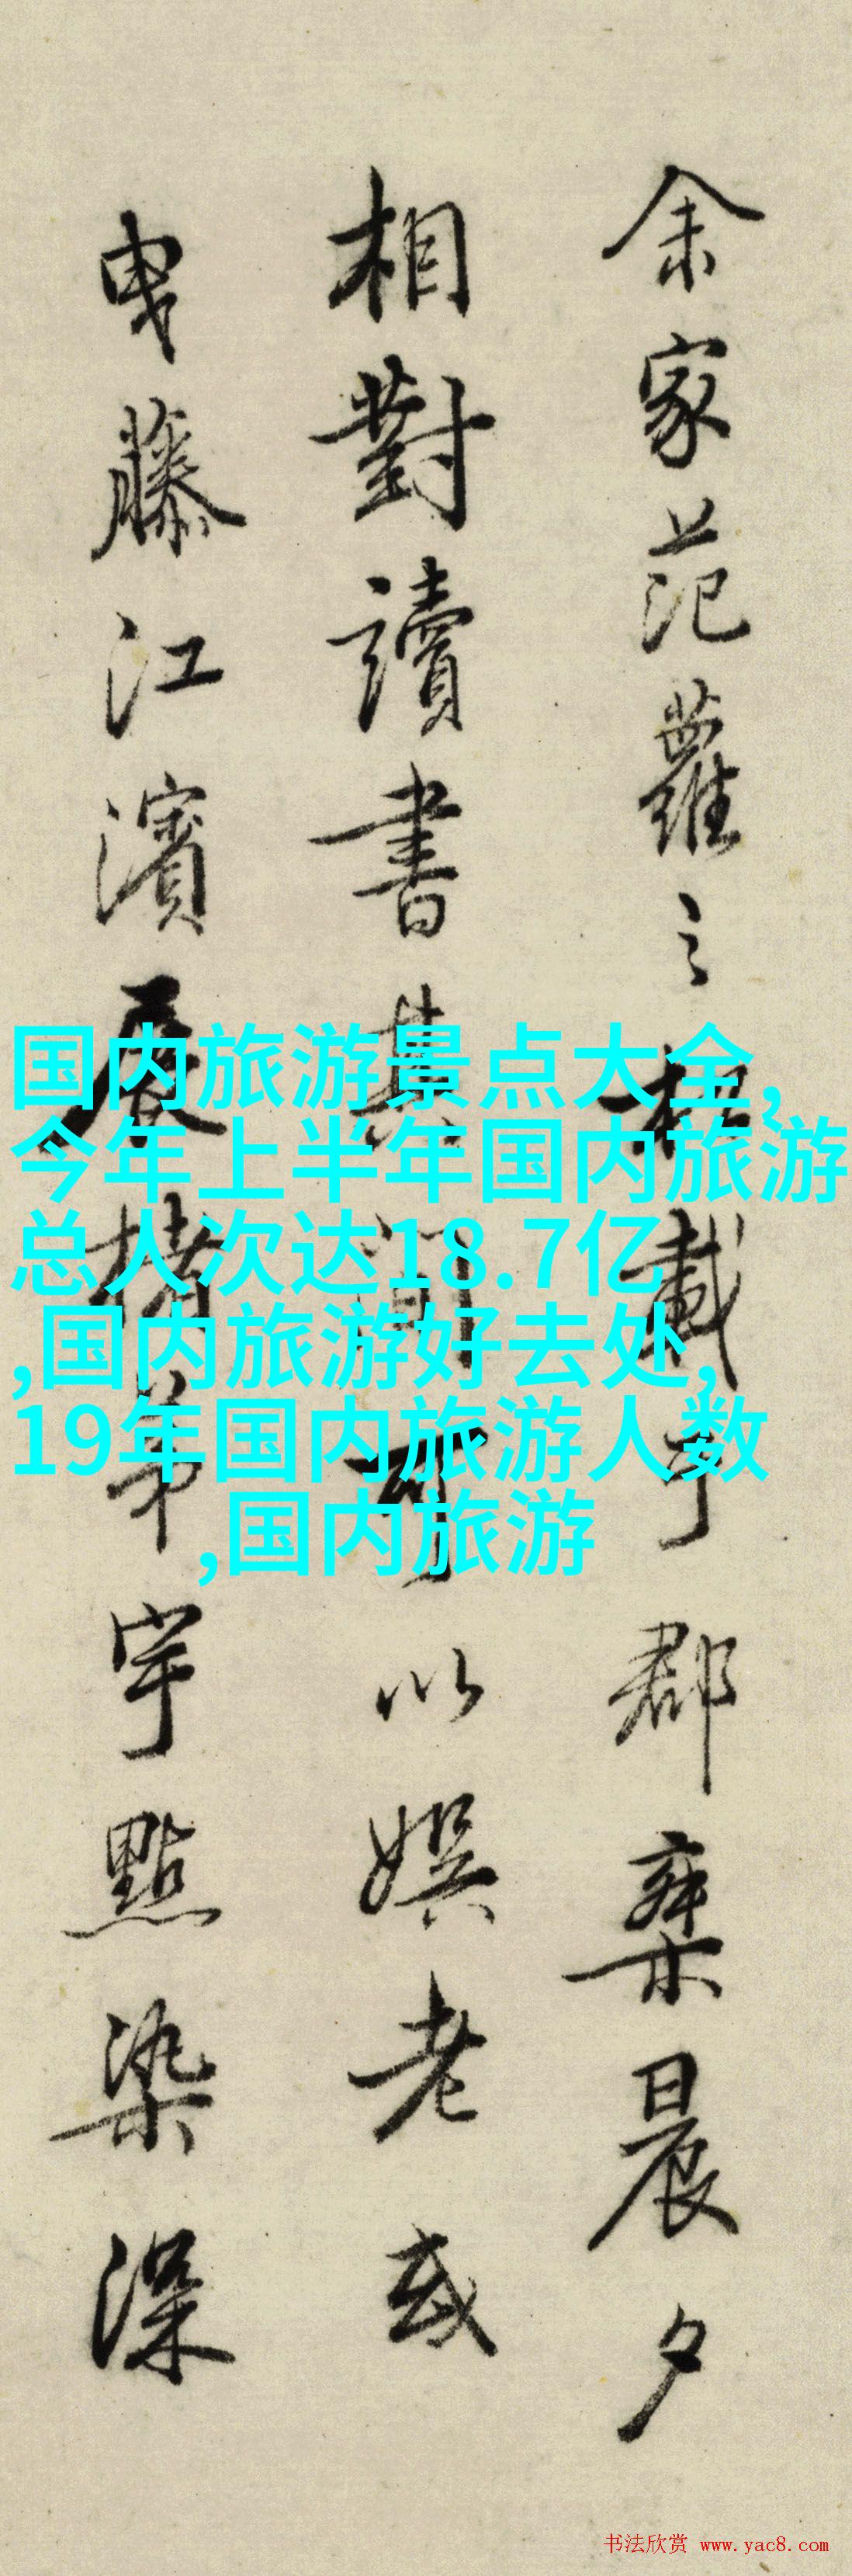 余家范蘿之
郡齋晨夕
相對讀書其間可以娛老或
曳藤江濱展楮弟宇點染深
国内旅游景点大全,
今年上半年国内旅游
总人次达18.7亿
,国内旅游好去处,
19年国内旅游人数
,国内旅游
书法欣赏 www.yac8.com